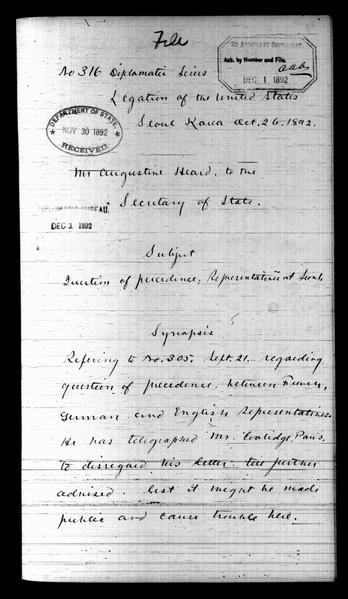 File
2D ASSISTANT SECRETARY.
Ack. by Number and File.
DEC 1 1892
No 316 Diplomatic Series
Legation of the United States
Seoul Korea Oct. 26. 1892.
DEPARTMENT OF STATE.
NOV 30 1892
RECEIVED.
Mr Augustine Heard, to the
Secretary of State.
BUREAU,
DEC 1 1892
Subject
Question of precedence; Representatives at Seoul.
Synopsis
Refering to No. 305, Sept. 21. regarding
question of precedence, between French,
German and English Representatives.
He has telegraphed Mr. Coolidge, Paris,
to disregard his letter till further
advised. lest it might be made
public and cause trouble here.